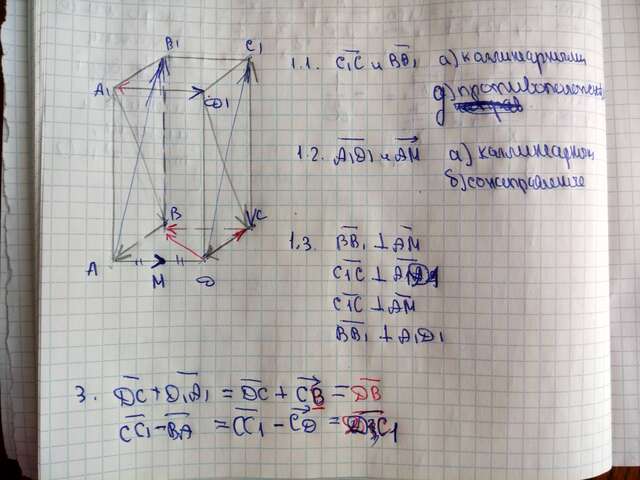 B₁
C₁
A₁
D₁
B
C
A
M
D
1.1. C₁C и BB₁ а) коллинеарными
д) противоположно
1.2. A₁D₁ и AM а) коллинеарными
б) сонаправленные
1.3. BB₁ ⊥ AM
C₁C ⊥ A₁D₁
C₁C ⊥ AM
BB₁ ⊥ A₁D₁
3. DC + D₁A₁ = DC + CB = DB
CC₁ - BA = CC₁ - CD = DC₁